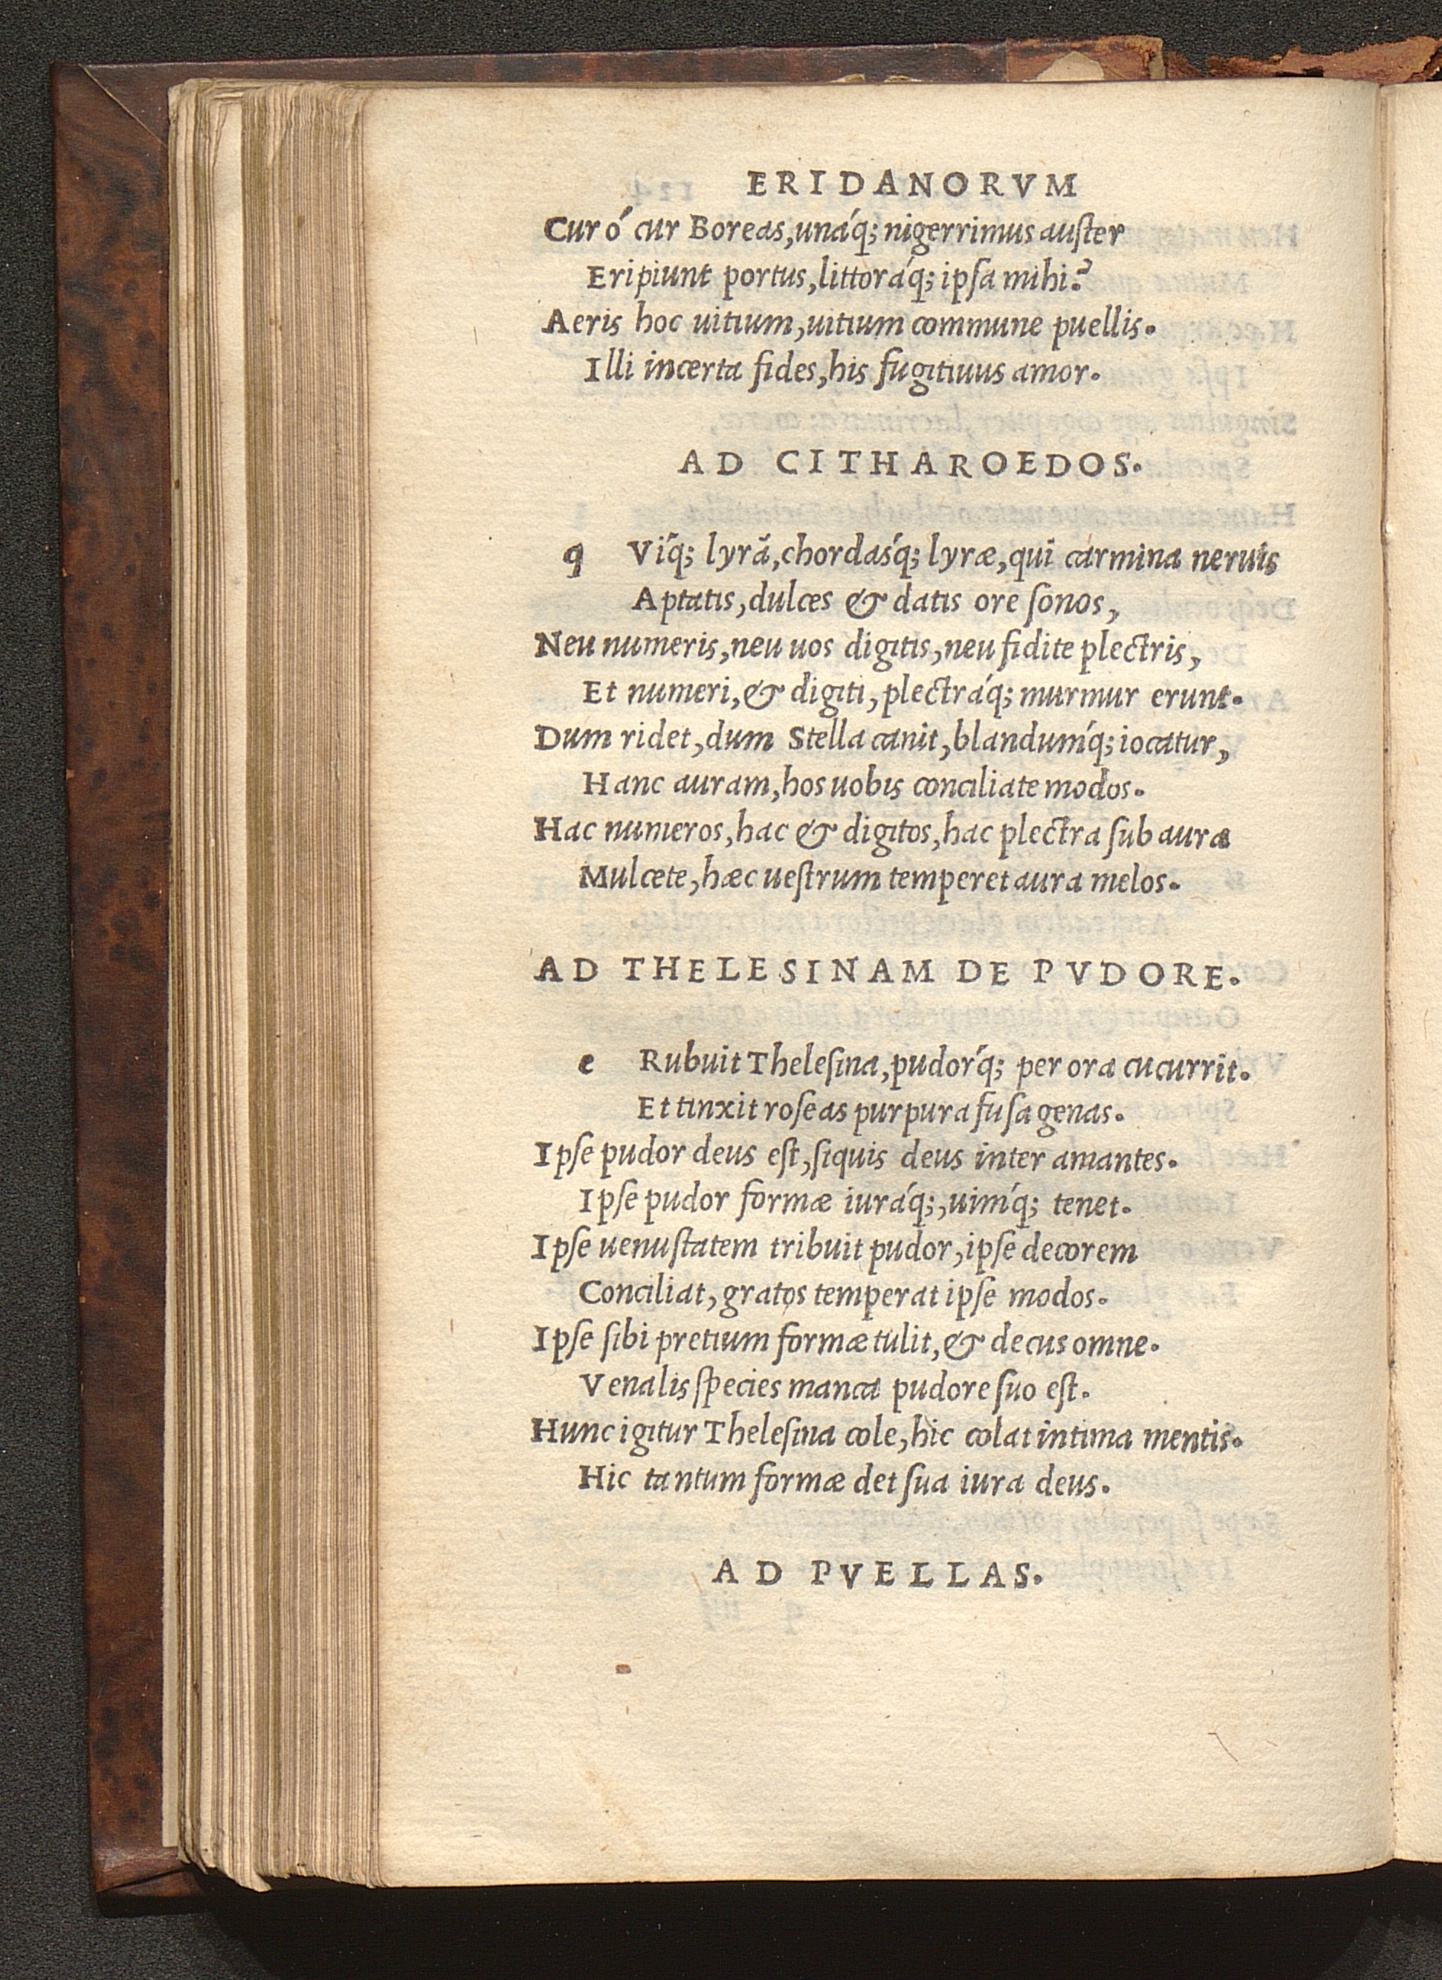 ERIDANORVM
Cur ó cur Boreas, unáq; nigerrimus auſter
Eripiunt portus, littoráq; ipſa mihi?
Aeris hoc uitium, uitium commune puellis.
Illi incerta fides, his fugitiuus amor.
AD CITHAROEDOS.
q Viq́; lyrã, chordasq́; lyræ, qui carmina neruis
Aptatis, dulces & datis ore ſonos,
Neu numeris, neu uos digitis, neu fidite plectris,
Et numeri, & digiti, plectráq; murmur erunt.
Dum ridet, dum Stella canit, blandumq́; iocatur,
Hanc auram, hos uobis conciliate modos.
Hac numeros, hac & digitos, hac plectra ſub aura
Mulcete, hæc ueſtrum temperet aura melos.
AD THELESINAM DE PVDORE.
e Rubuit Theleſina, pudorq́; per ora cucurrit.
Et tinxit roſeas purpura fuſa genas.
Ipſe pudor deus eſt, ſiquis deus inter amantes.
Ipſe pudor formæ iuráq;, uimq́; tenet.
Ipſe uenuſtatem tribuit pudor, ipſe decorem
Conciliat, gratos temperat ipſe modos.
Ipſe ſibi pretium formæ tulit, & decus omne.
Venalis ſpecies manca pudore ſuo eſt.
Hunc igitur Theleſina cole, hic colat intima mentis.
Hic tantum formæ det ſua iura deus.
AD PVELLAS.